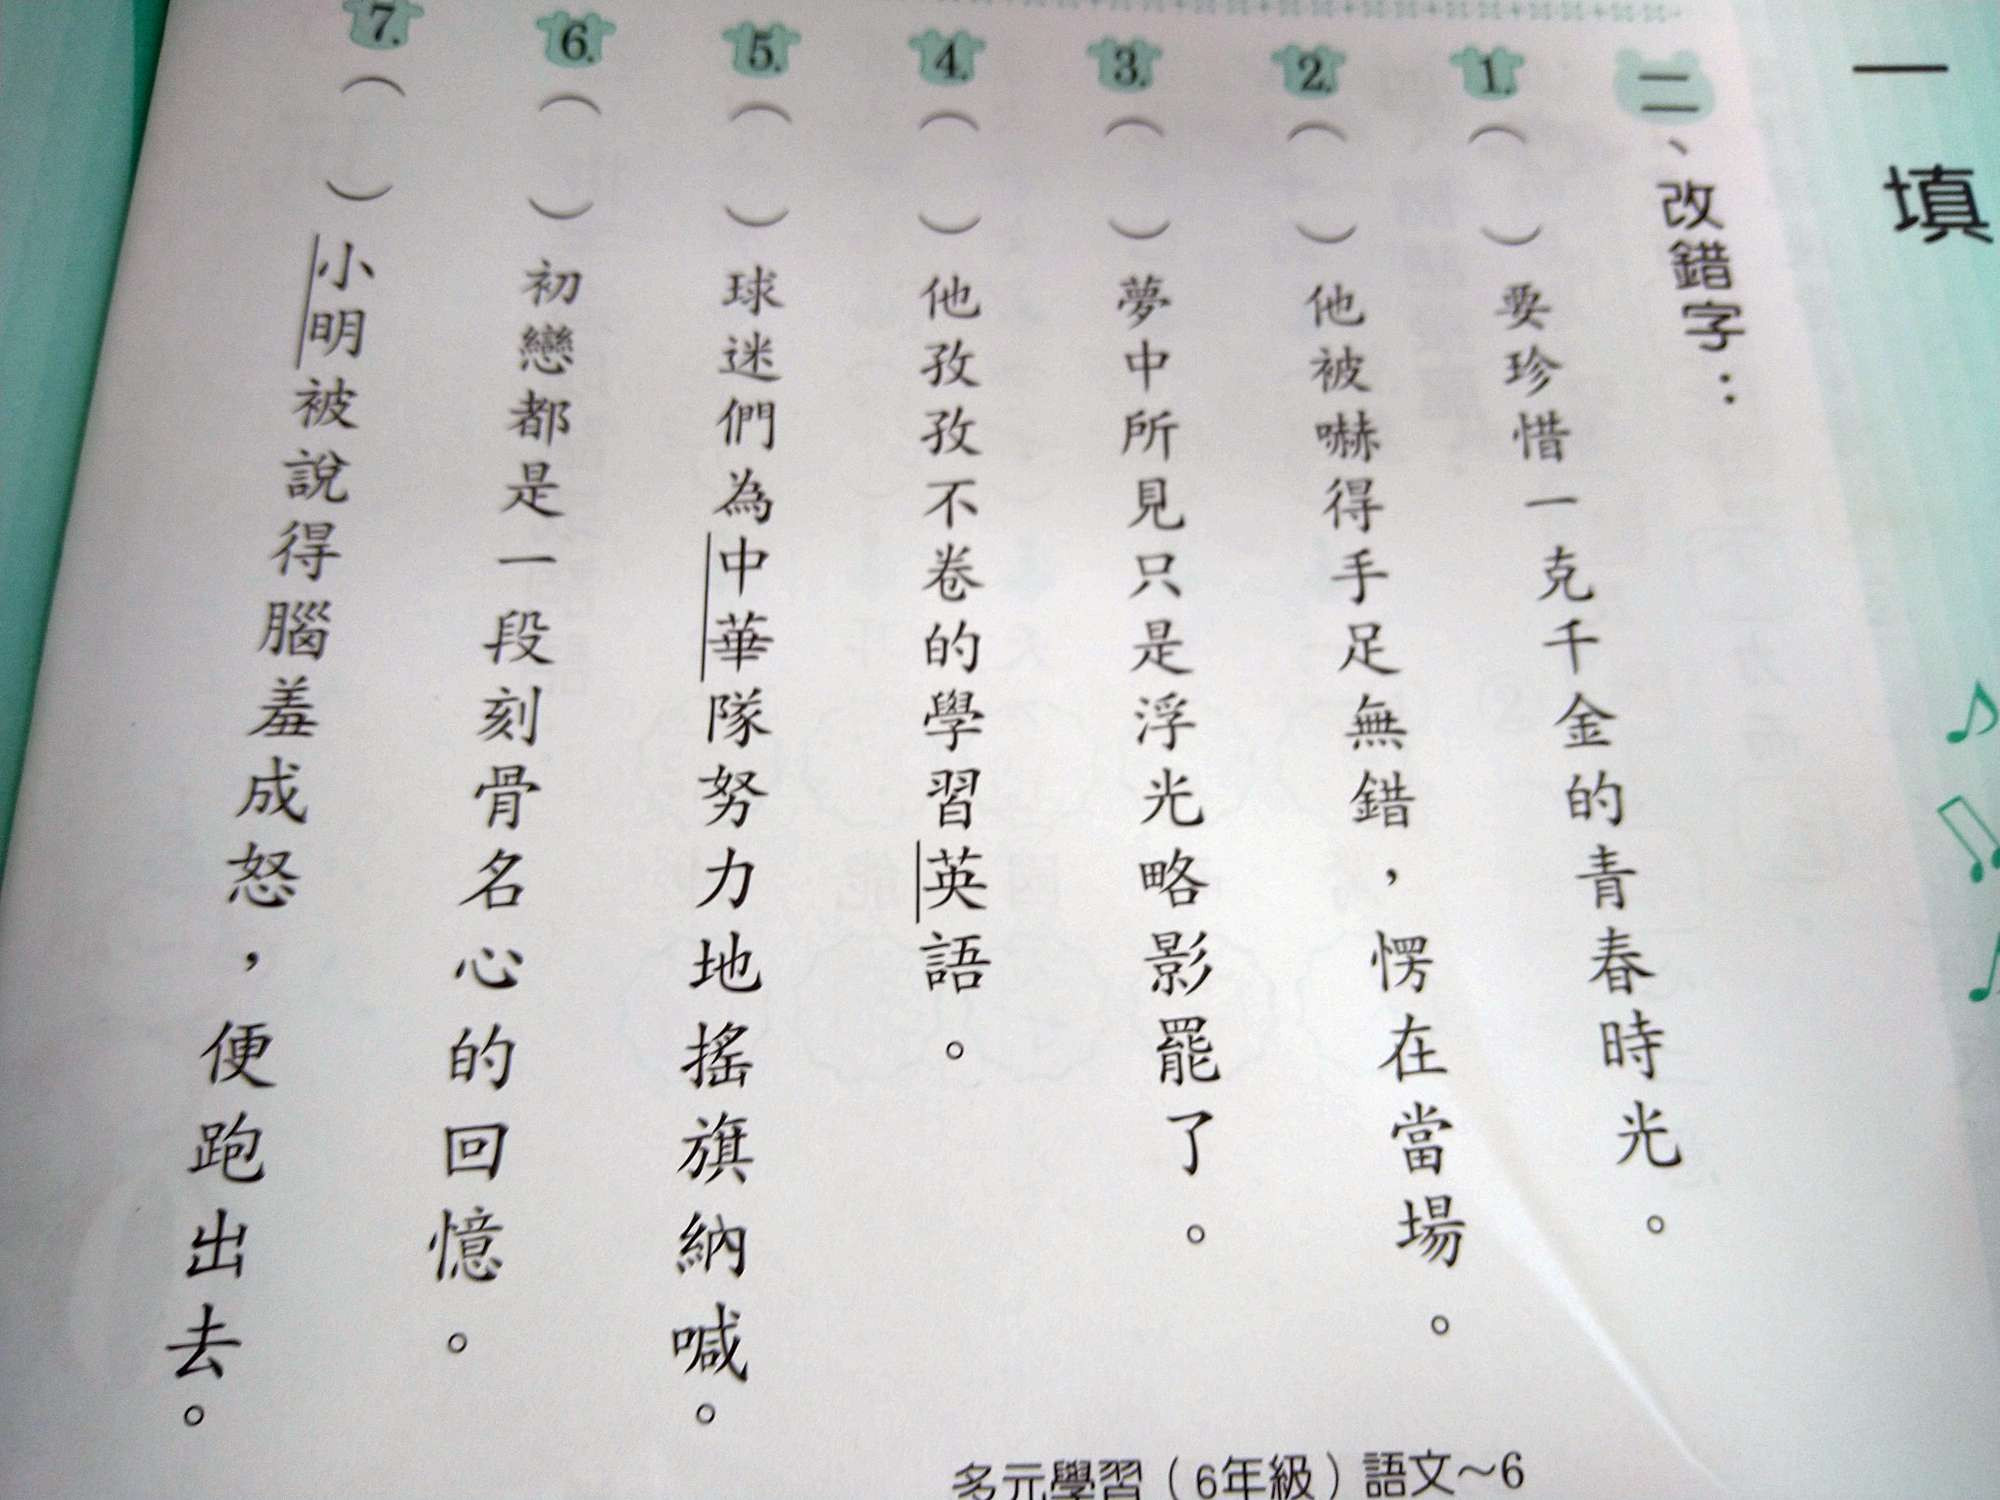 一
填
二、改錯字：
1.（ ）要珍惜一克千金的青春時光。
2.（ ）他被嚇得手足無錯，愣在當場。
3.（ ）夢中所見只是浮光略影罷了。
4.（ ）他孜孜不卷的學習英語。
5.（ ）球迷們為中華隊努力地搖旗納喊。
6.（ ）初戀都是一段刻骨名心的回憶。
7.（ ）小明被說得腦羞成怒，便跑出去。
多元學習（6年級）語文～6